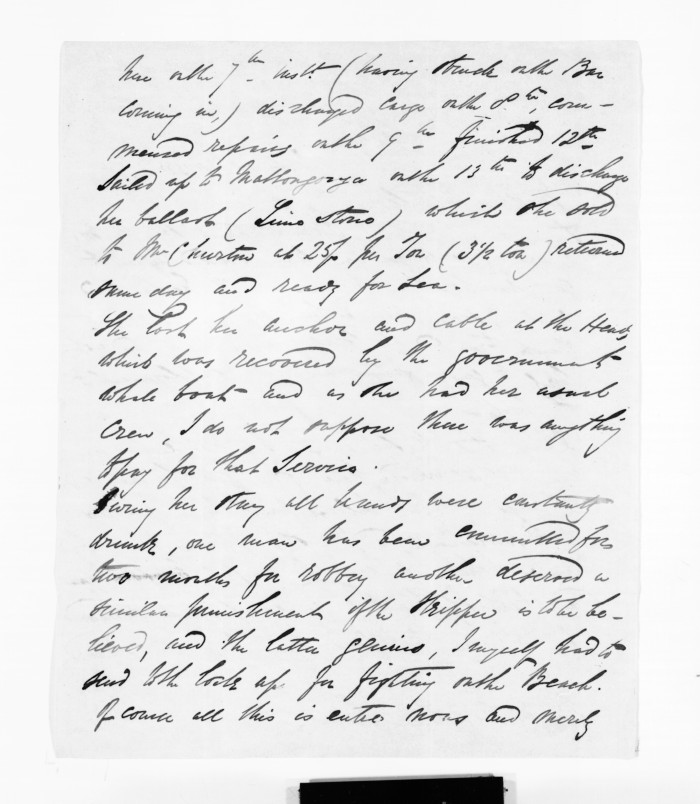 here on the 7th inst. (having struck on the Bar
coming in,) discharged cargo on the 8th, com-
menced repairing on the 9th finished 12th
Sailed up to on the 13th to discharge
her ballast (Lime Stone) which she sold
to Mr Churton at 25/ per Ton (3 1/2 ton) returned
same day and ready for Sea.
She lost her anchor and cable at the Heads
which was recovered by the government
whale boat and as she had her usual
crew, I do not suppose there was anything
to pay for that Service.
During her stay all hands were constantly
drunk, one man has been committed for
two months for robbery another deserved a
similar punishment if the Skipper is to be be-
lieved, and the latter genius, I myself had to
send to the lock up for fighting on the Beach.
Of course all this is entre nous and merely